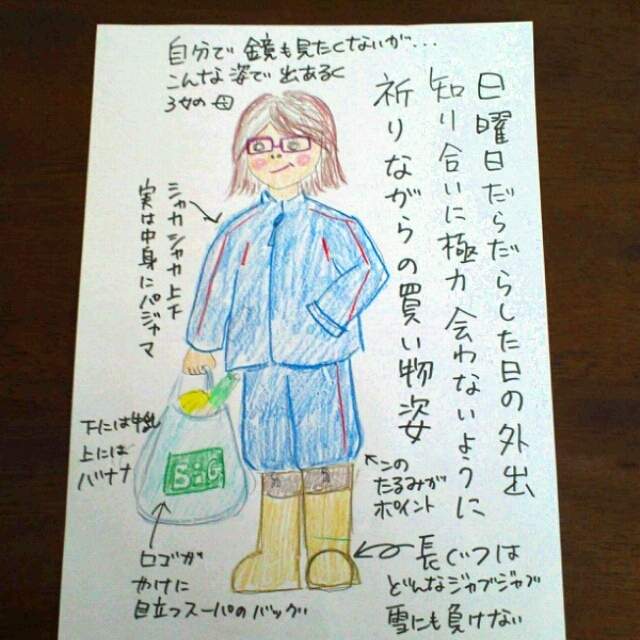 自分で鏡も見たくないが...
こんな姿で出あるく
3女の母
日曜日だらだらした日の外出
知り合いに極力会わないように
祈りながらの買い物姿
シャカシャカ上下
実は中身にパジャマ
下には牛乳
上には
バナナ
BiG
ロゴが
やけに
目立つスーパのバッグ
このたるみが
ポイント
長ぐつは
どんなジャブジャブ
雪にも負けない